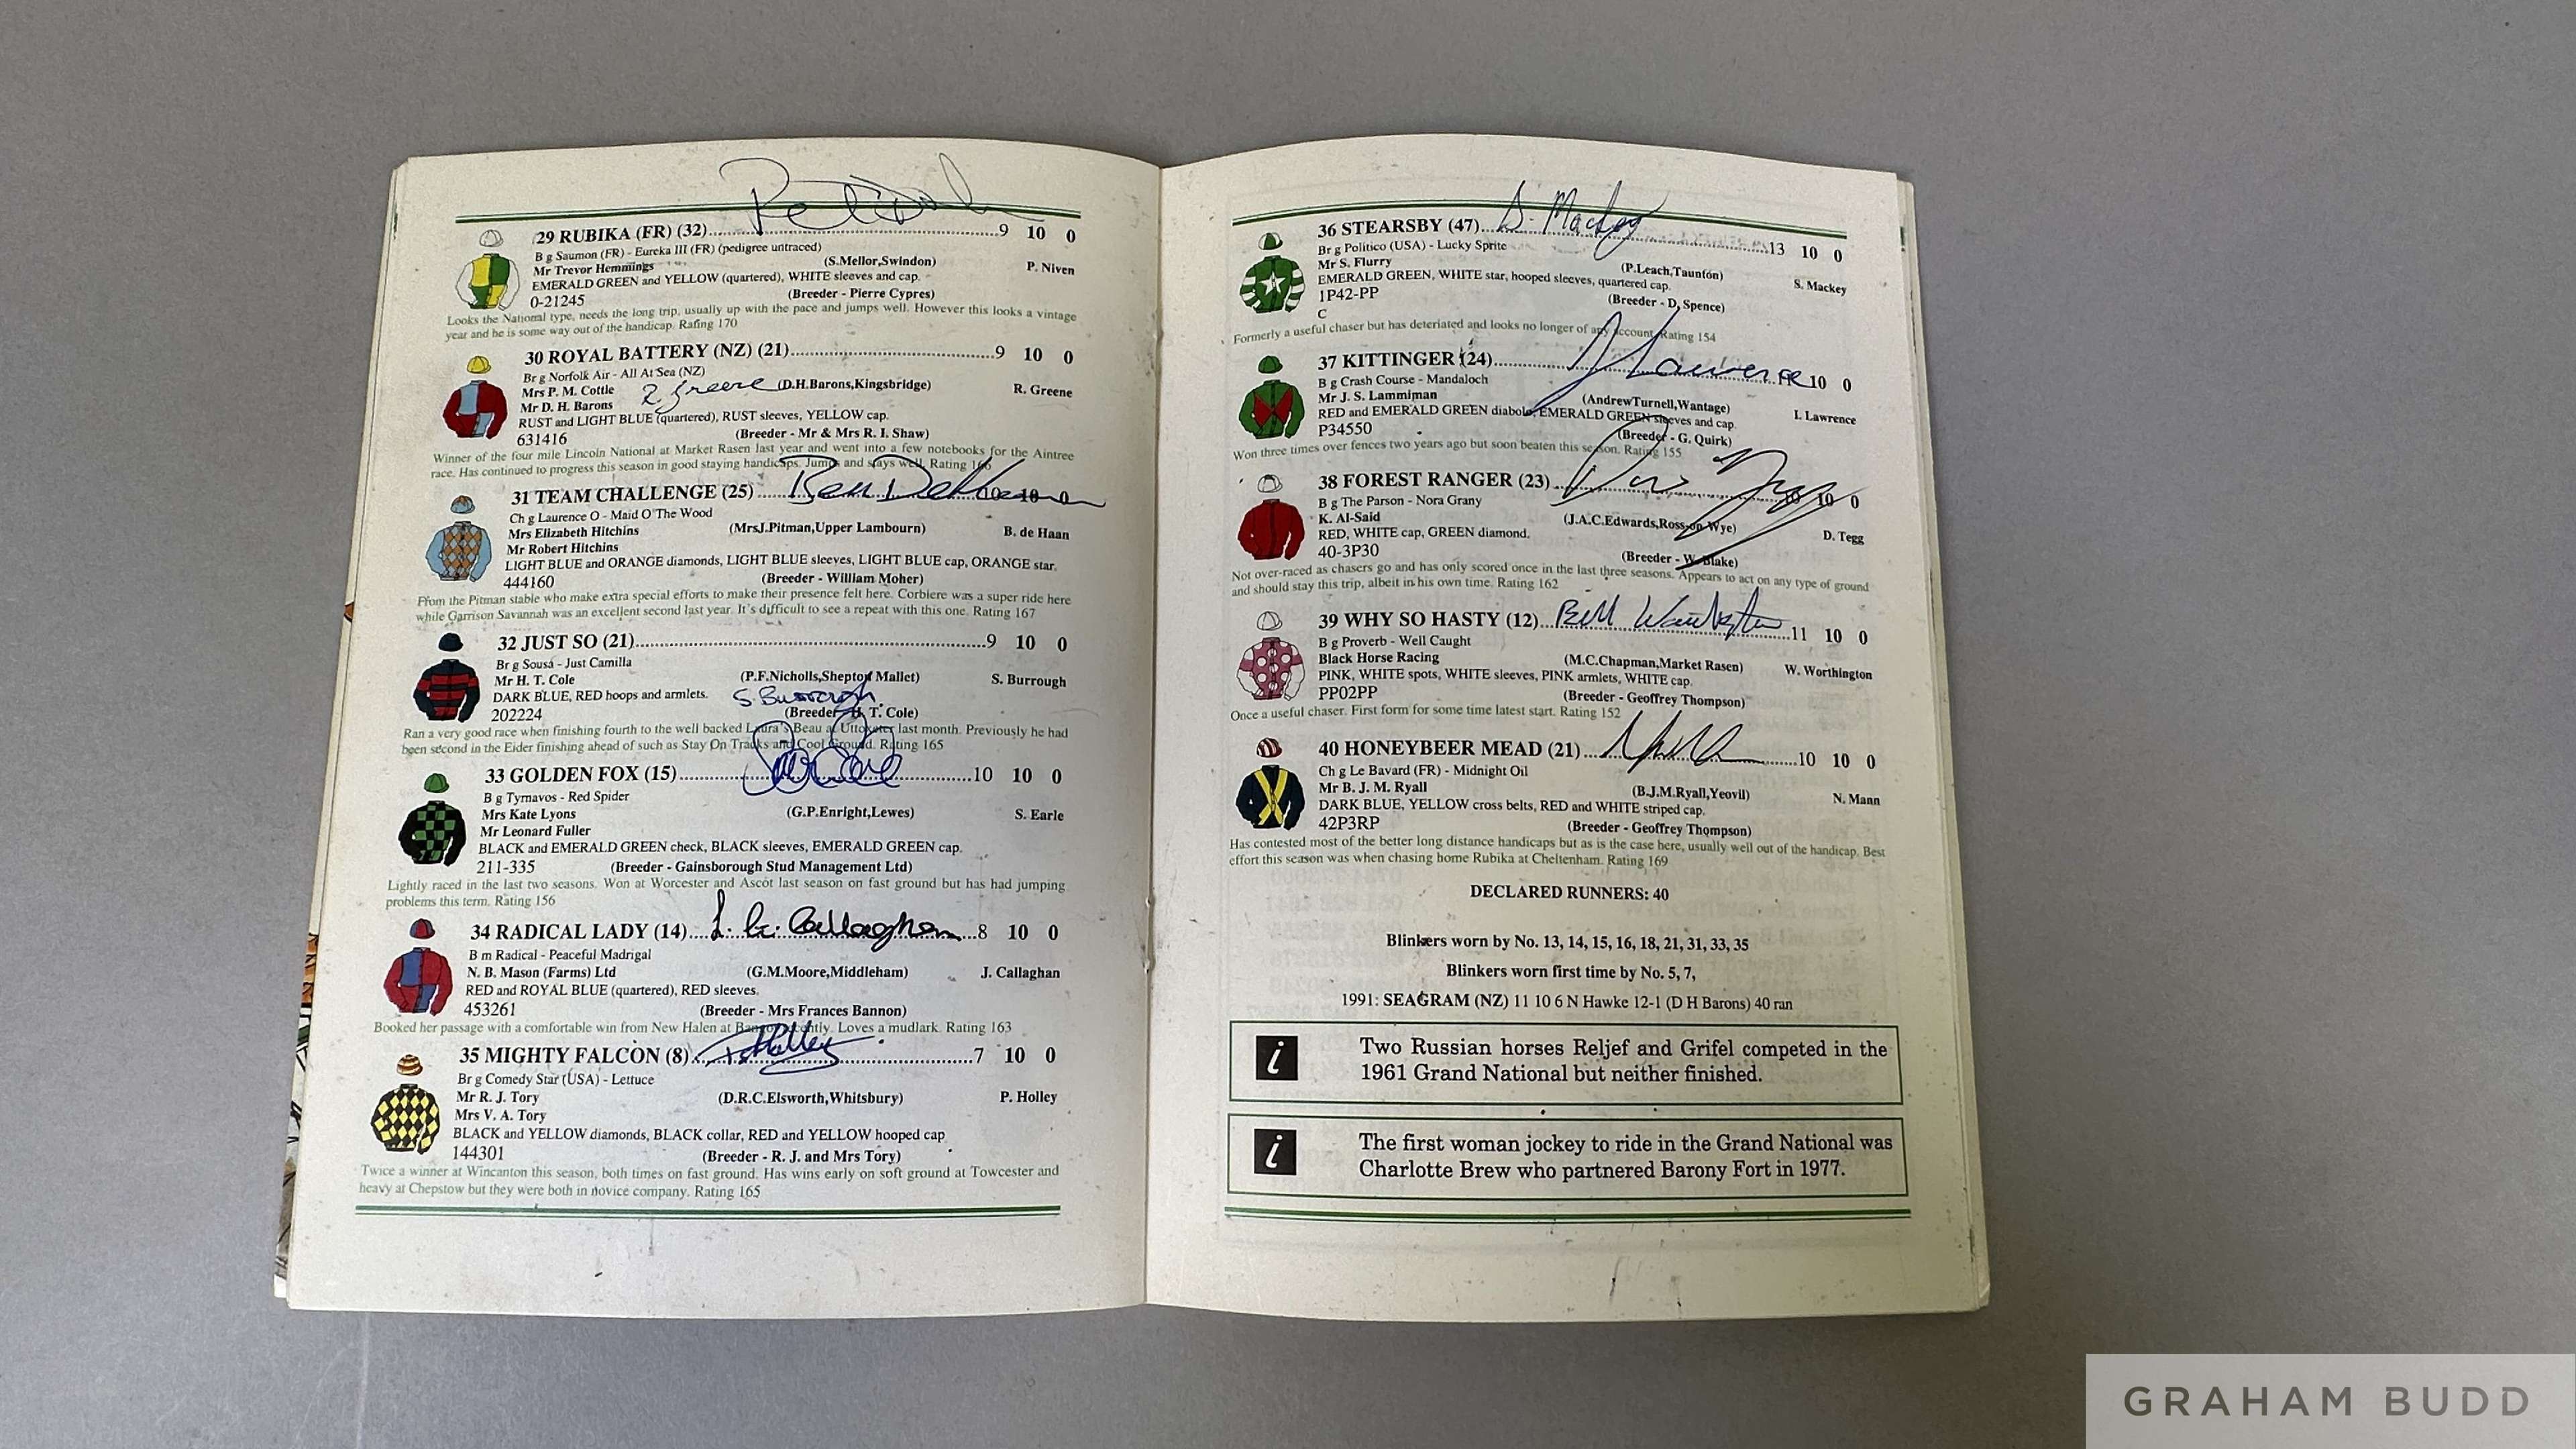 29 RUBIKA (FR) (32)..........9 10 0
B g Saumon (FR) - Eureka III (FR) (pedigree untraced)
Mr Trevor Hemmings (S.Mellor,Swindon) P. Niven
EMERALD GREEN and YELLOW (quartered), WHITE sleeves and cap.
0-21245 (Breeder - Pierre Cypres)
Looks the National type, needs the long trip, usually up with the pace and jumps well. However this looks a vintage
year and he is some way out of the handicap. Rating 170
30 ROYAL BATTERY (NZ) (21)..........9 10 0
Br g Norfolk Air - All At Sea (NZ)
Mrs P. M. Cottle R Greene (D.H.Barons,Kingsbridge) R. Greene
Mr D. H. Barons
RUST and LIGHT BLUE (quartered), RUST sleeves, YELLOW cap.
631416 (Breeder - Mr & Mrs R. I. Shaw)
Winner of the four mile Lincoln National at Market Rasen last year and went into a few notebooks for the Aintree
race. Has continued to progress this season in good staying handicaps. Jumps and stays well. Rating 166
31 TEAM CHALLENGE (25).....Ben De Haan 10 10 0
Ch g Laurence O - Maid O'The Wood
Mrs Elizabeth Hitchins (MrsJ.Pitman,Upper Lambourn) B. de Haan
Mr Robert Hitchins
LIGHT BLUE and ORANGE diamonds, LIGHT BLUE sleeves, LIGHT BLUE cap, ORANGE star.
444160 (Breeder - William Moher)
From the Pitman stable who make extra special efforts to make their presence felt here. Corbiere was a super ride here
while Garrison Savannah was an excellent second last year. It's difficult to see a repeat with this one. Rating 167
32 JUST SO (21)..........9 10 0
Br g Sousa - Just Camilla
Mr H. T. Cole (P.F.Nicholls,Shepton Mallet) S. Burrough
DARK BLUE, RED hoops and armlets. S. Burrough
202224 (Breeder - H. T. Cole)
Ran a very good race when finishing fourth to the well backed Laura's Beau at Uttoxeter last month. Previously he had
been second in the Eider finishing ahead of such as Stay On Tracks and Cool Ground. Rating 165
33 GOLDEN FOX (15)..........10 10 0
B g Tyrnavos - Red Spider
Mrs Kate Lyons (G.P.Enright,Lewes) S. Earle
Mr Leonard Fuller
BLACK and EMERALD GREEN check, BLACK sleeves, EMERALD GREEN cap.
211-335 (Breeder - Gainsborough Stud Management Ltd)
Lightly raced in the last two seasons. Won at Worcester and Ascot last season on fast ground but has had jumping
problems this term. Rating 156
34 RADICAL LADY (14)....Callaghan...8 10 0
B m Radical - Peaceful Madrigal
N. B. Mason (Farms) Ltd (G.M.Moore,Middleham) J. Callaghan
RED and ROYAL BLUE (quartered), RED sleeves.
453261 (Breeder - Mrs Frances Bannon)
Booked her passage with a comfortable win from New Halen at Bangor recently. Loves a mudlark. Rating 163
35 MIGHTY FALCON (8)..........7 10 0
Br g Comedy Star (USA) - Lettuce
Mr R. J. Tory (D.R.C.Elsworth,Whitsbury) P. Holley
Mrs V. A. Tory
BLACK and YELLOW diamonds, BLACK collar, RED and YELLOW hooped cap
144301 (Breeder - R. J. and Mrs Tory)
Twice a winner at Wincanton this season, both times on fast ground. Has wins early on soft ground at Towcester and
heavy at Chepstow but they were both in novice company. Rating 165
36 STEARSBY (47)...S. Mackey.......13 10 0
Br g Politico (USA) - Lucky Sprite
Mr S. Flurry (P.Leach,Taunton) S. Mackey
EMERALD GREEN, WHITE star, hooped sleeves, quartered cap.
1P42-PP (Breeder - D. Spence)
C
Formerly a useful chaser but has deteriated and looks no longer of any account. Rating 154
37 KITTINGER (24)..........Lawrence 10 0
B g Crash Course - Mandaloch
Mr J. S. Lammiman (AndrewTurnell,Wantage) I. Lawrence
RED and EMERALD GREEN diabolo, EMERALD GREEN sleeves and cap.
P34550 (Breeder - G. Quirk)
Won three times over fences two years ago but soon beaten this season. Rating 155
38 FOREST RANGER (23)..........10 10 0
B g The Parson - Nora Grany
K. Al-Said (J.A.C.Edwards,Ross-on-Wye) D. Tegg
RED, WHITE cap, GREEN diamond.
40-3P30 (Breeder - W. Blake)
Not over-raced as chasers go and has only scored once in the last three seasons. Appears to act on any type of ground
and should stay this trip, albeit in his own time. Rating 162
39 WHY SO HASTY (12)..Bill Worthington..11 10 0
B g Proverb - Well Caught
Black Horse Racing (M.C.Chapman,Market Rasen) W. Worthington
PINK, WHITE spots, WHITE sleeves, PINK armlets, WHITE cap.
PP02PP (Breeder - Geoffrey Thompson)
Once a useful chaser. First form for some time latest start. Rating 152
40 HONEYBEER MEAD (21)..........10 10 0
Ch g Le Bavard (FR) - Midnight Oil
Mr B. J. M. Ryall (B.J.M.Ryall,Yeovil) N. Mann
DARK BLUE, YELLOW cross belts, RED and WHITE striped cap.
42P3RP (Breeder - Geoffrey Thompson)
Has contested most of the better long distance handicaps but as is the case here, usually well out of the handicap. Best
effort this season was when chasing home Rubika at Cheltenham. Rating 169
DECLARED RUNNERS: 40
Blinkers worn by No. 13, 14, 15, 16, 18, 21, 31, 33, 35
Blinkers worn first time by No. 5, 7,
1991: SEAGRAM (NZ) 11 10 6 N Hawke 12-1 (D H Barons) 40 ran
i Two Russian horses Reljef and Grifel competed in the
1961 Grand National but neither finished.
i The first woman jockey to ride in the Grand National was
Charlotte Brew who partnered Barony Fort in 1977.
GRAHAM BUDD